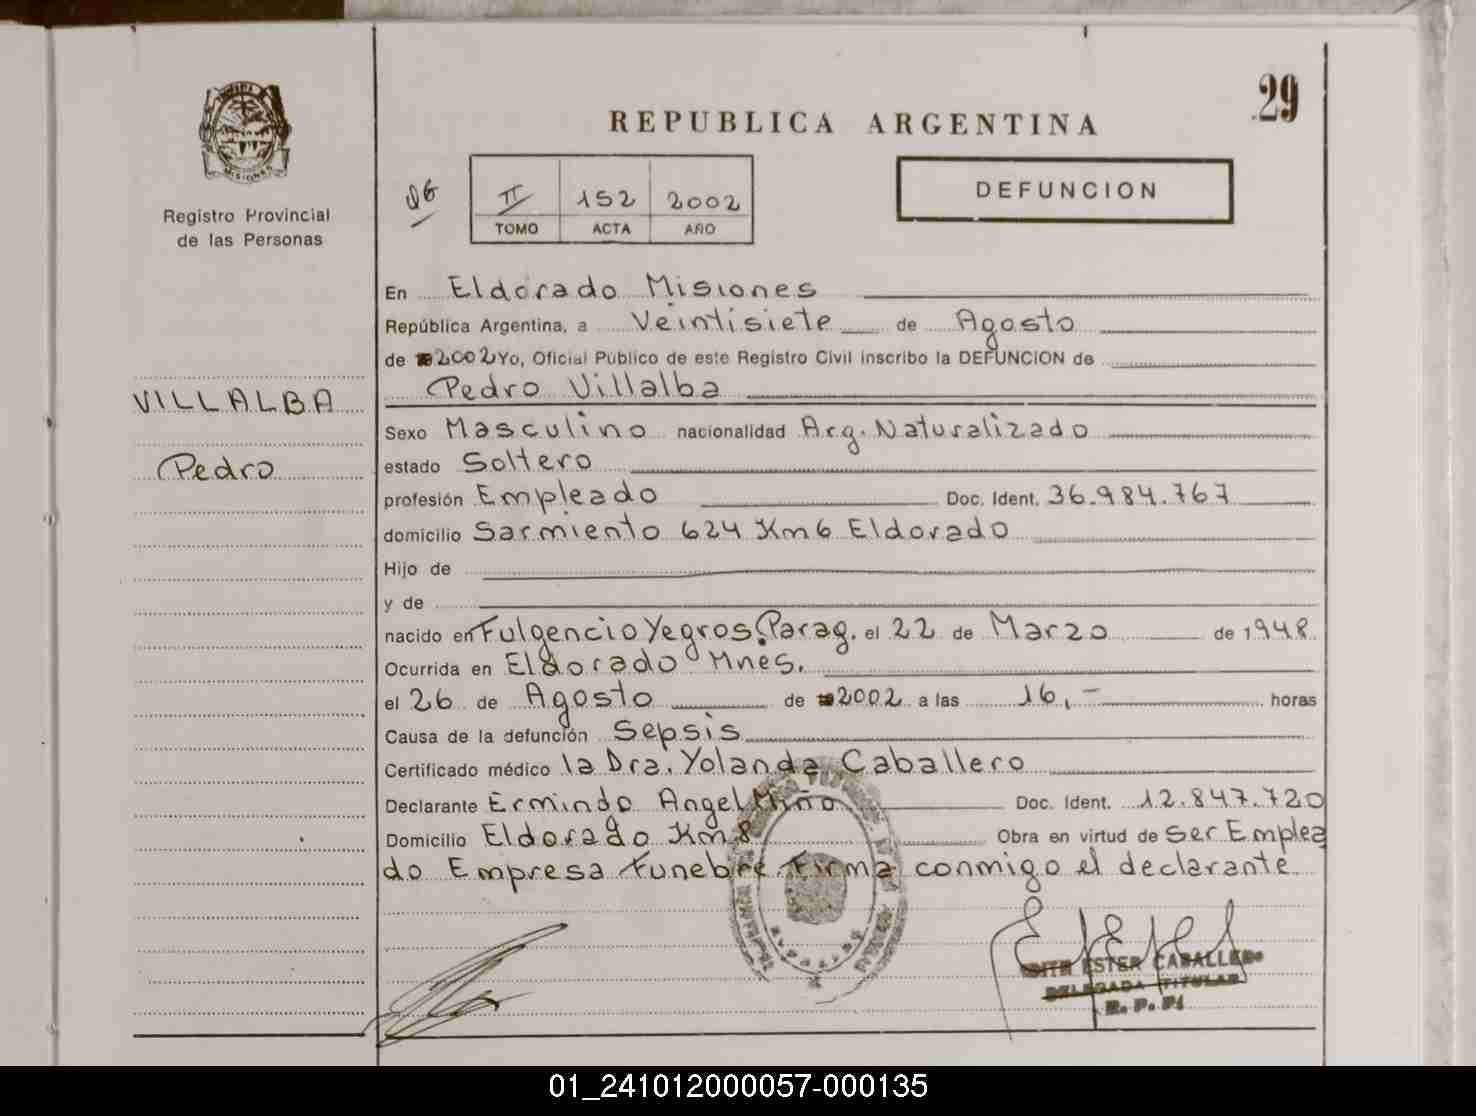 29
REPUBLICA ARGENTINA
DEFUNCION
II 152 2002
TOMO ACTA AÑO
MISIONES
Registro Provincial
de las Personas
VILLALBA
Pedro
En Eldorado Misiones
República Argentina, a Veintisiete de Agosto
de 2002 Yo, Oficial Público de este Registro Civil inscribo la DEFUNCION de
Pedro Villalba
Sexo Masculino nacionalidad Arg. Naturalizado
estado Soltero
profesión Empleado Doc. Ident. 36.984.767
domicilio Sarmiento 624 Km 6 Eldorado
Hijo de
y de
nacido en Fulgencio Yegros. Parag. el 22 de Marzo de 1948
Ocurrida en Eldorado Mnes.
el 26 de Agosto de 2002 a las 16,- horas
Causa de la defunción Sepsis
Certificado médico la Dra. Yolanda Caballero
Declarante Ermindo Angel Miño Doc. Ident. 12.847.720
Domicilio Eldorado Km 8 Obra en virtud de ser Emplea
do Empresa Funebre. Firma conmigo el declarante
ESTER CABALLERO
DELEGADA TITULAR
R. P. P.
01_241012000057-000135